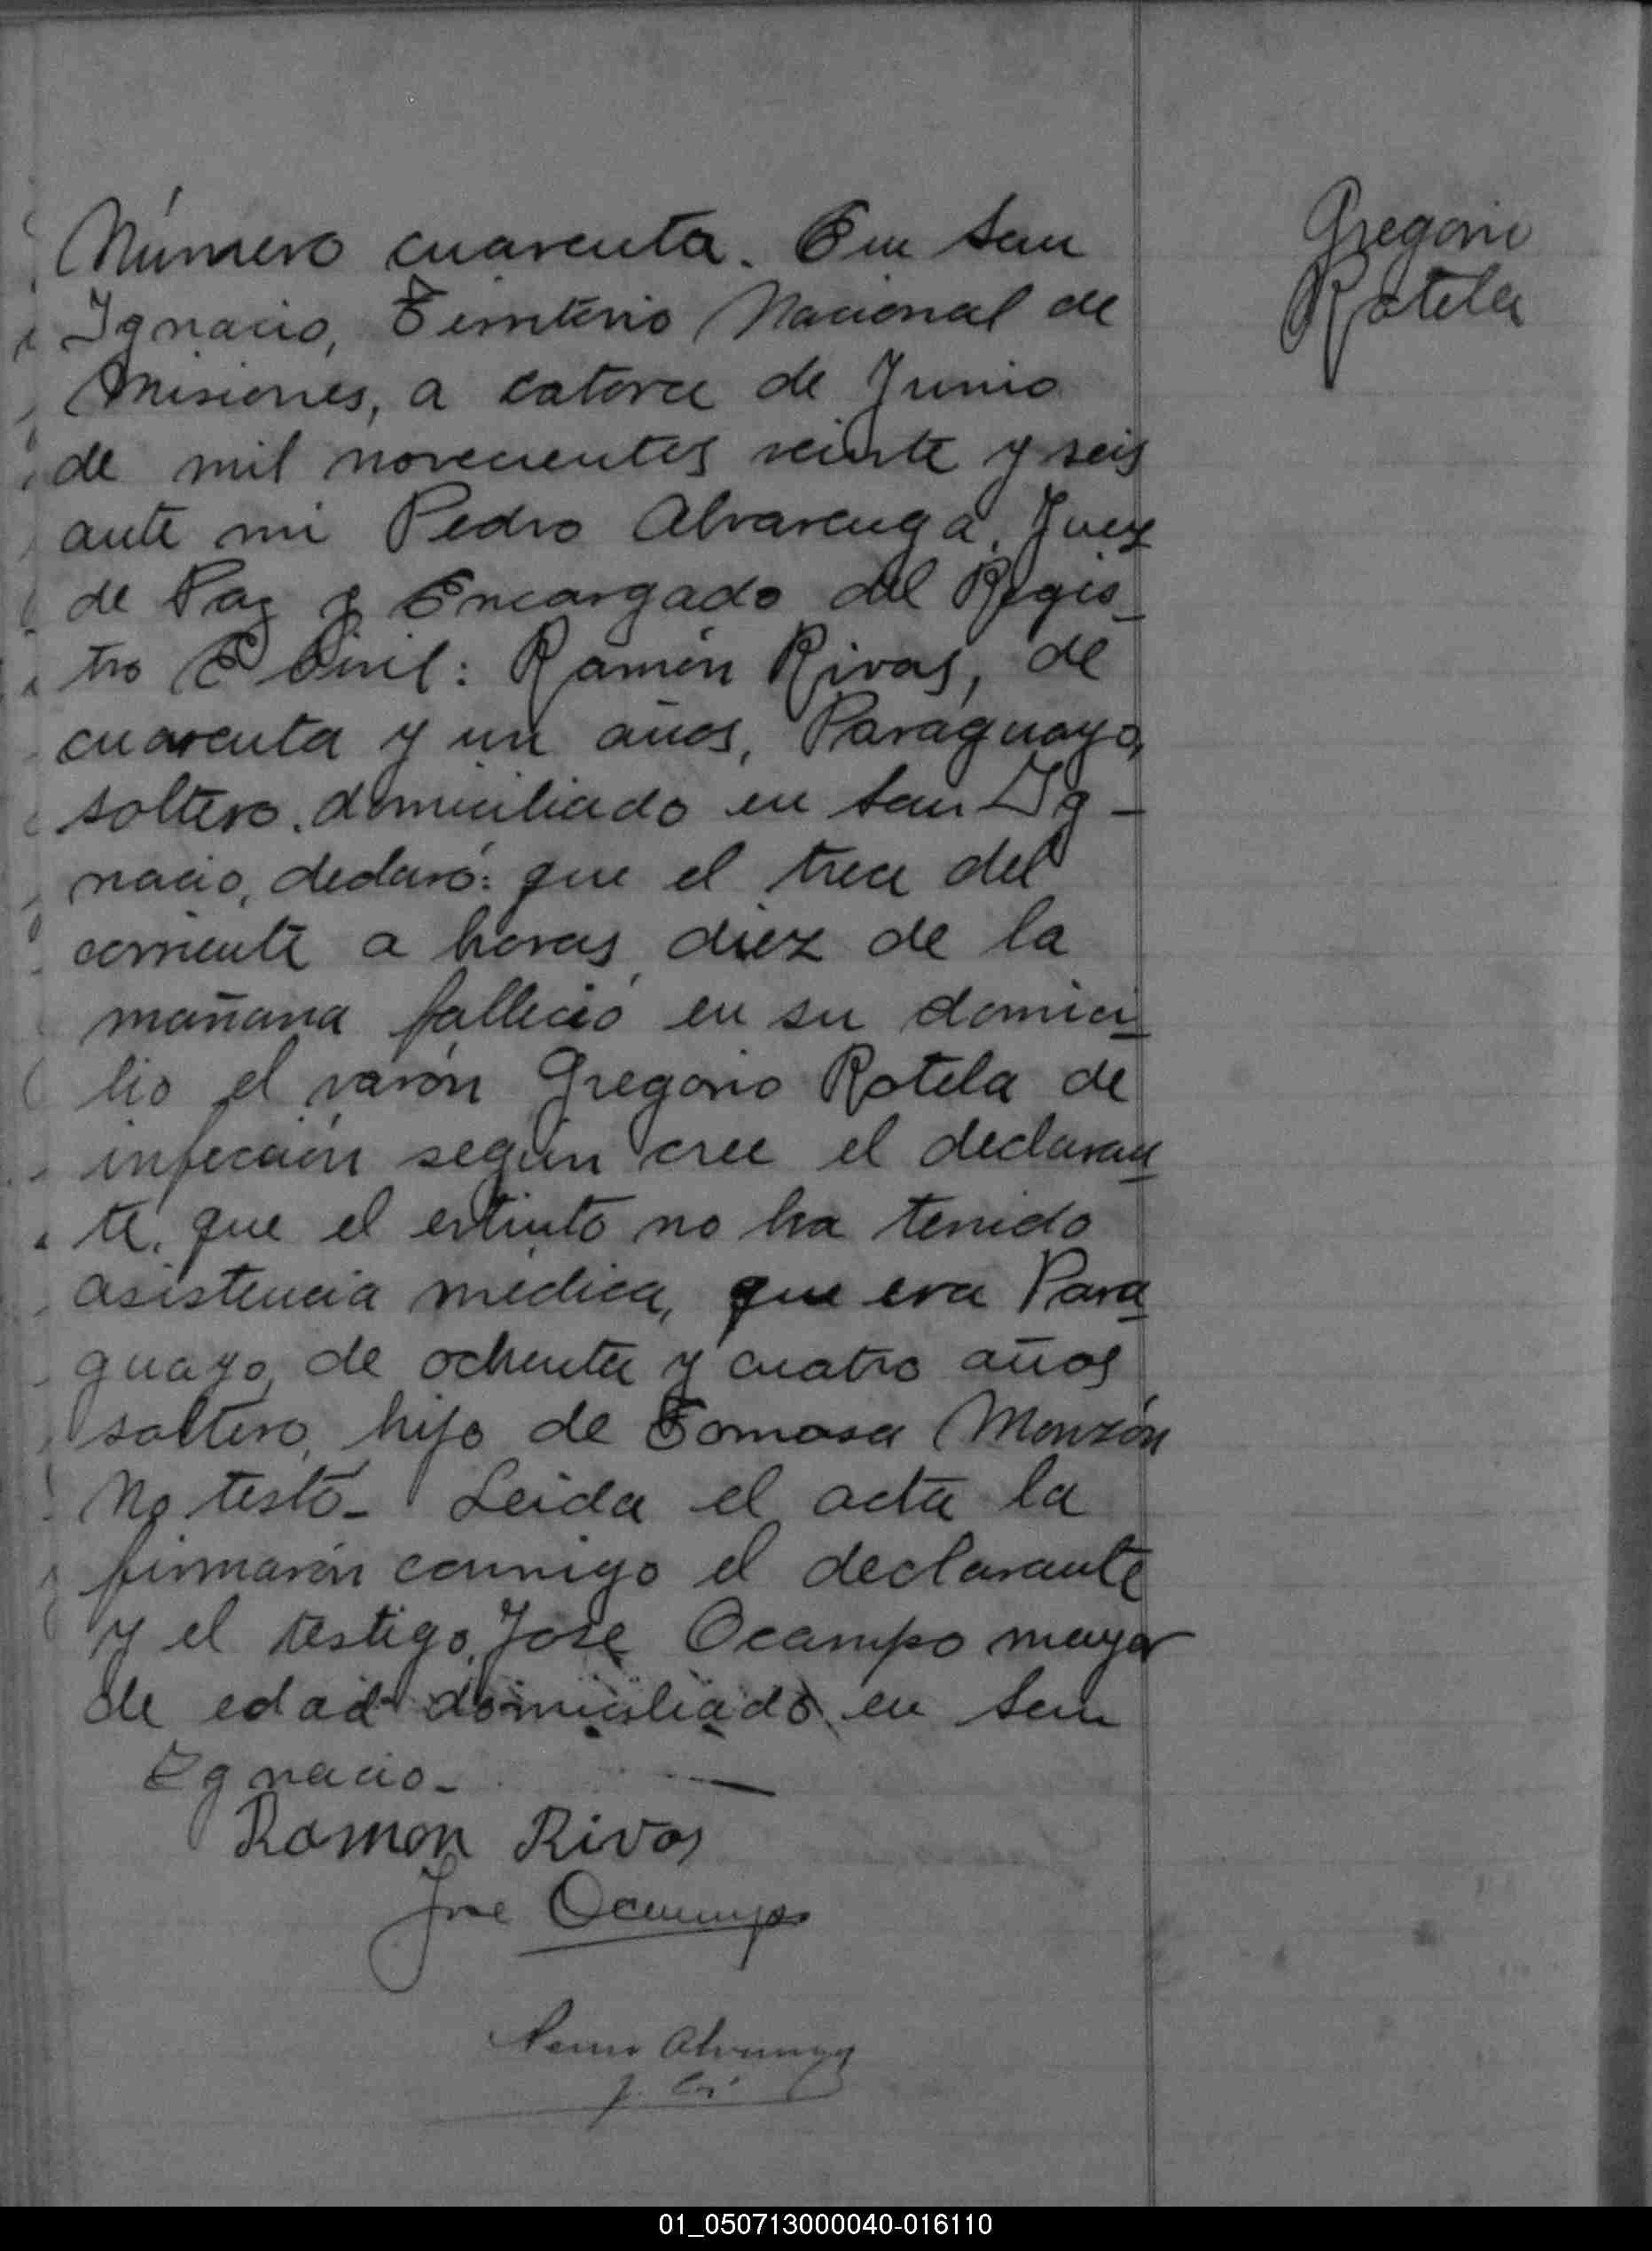 Número cuarenta. En San
Ignacio, Territorio Nacional de
Misiones, a catorce de Junio
de mil novecientos veinte y seis
ante mi Pedro Alvarenga, Juez
de Paz y Encargado del Regis_
tro C Civil: Ramón Rivas, de
cuarenta y un años, Paraguayo,
soltero, domiciliado en San Ig-
nacio, declaró: que el trece del
corriente a horas diez de la
mañana falleció en su domici
lio el varón Gregorio Rotela de
infección según cree el declaran
te, que el extinto no ha tenido
asistencia medica, que era Para
guayo, de ochenta y cuatro años
soltero, hijo de Tomasa Monzón
No testó_ Leida el acta la
firmarón conmigo el declarante
y el testigo, José Ocampo mayor
de edad domiciliado en San
Ignacio_
Ramon Rivas
Jose Ocampo
Alvarenga
Gregorio
Rotela
01_050713000040-016110